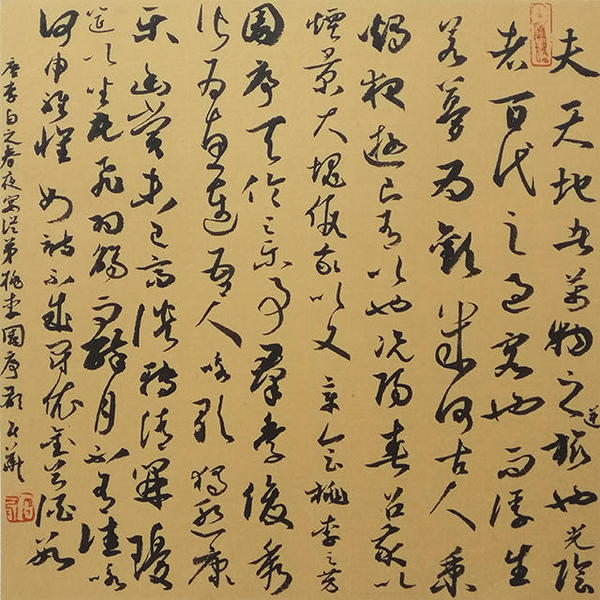 夫天地者萬物之逆旅也光陰
者百代之過客也而浮生
若夢為歡幾何古人秉
燭夜遊良有以也況陽春召我以
煙景大塊假我以文章會桃李之芳
園序天倫之樂事群季俊秀
皆為惠連吾人詠歌獨慚康
樂幽賞未已高談轉清開瓊
筵以坐花飛羽觴而醉月不有佳詠
何申雅懷如詩不成罰依金谷酒數
唐李白之春夜宴從弟桃李園序